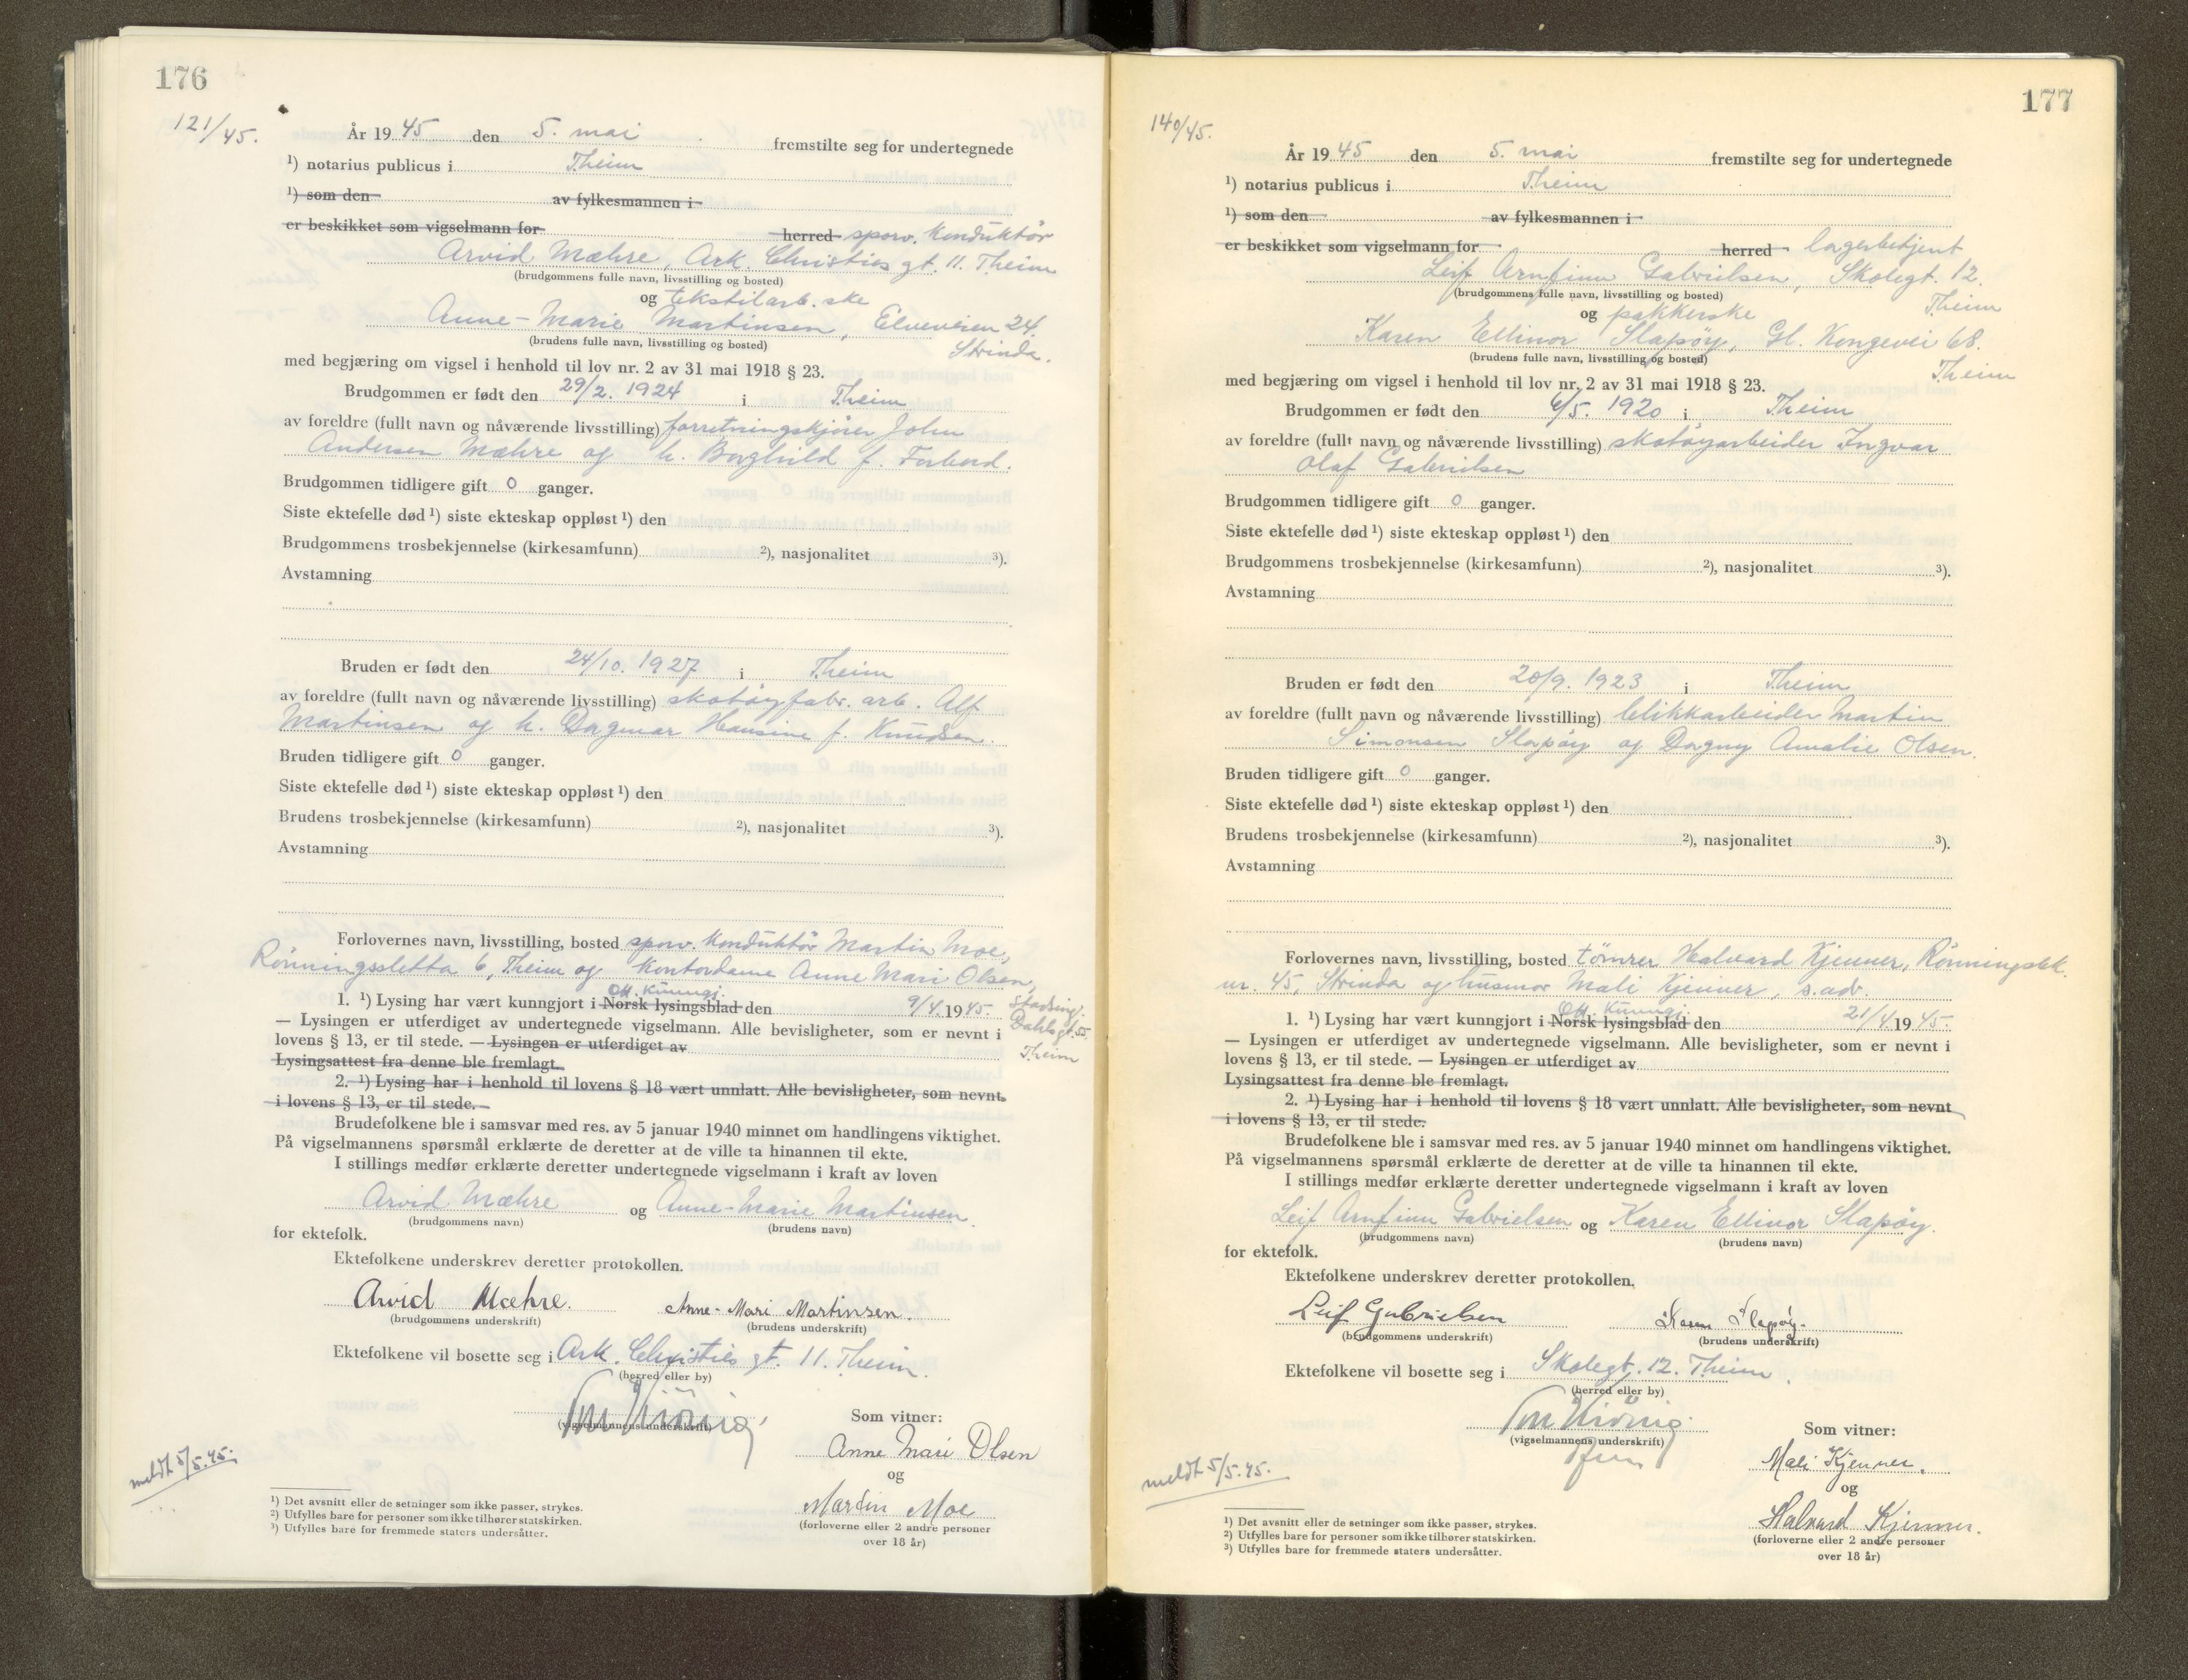 176
121/45.
År 1945 den 5. mai fremstilte seg for undertegnede
¹) notarius publicus i Theim
¹) som den av fylkesmannen i
er beskikket som vigselmann for herred sporv. konduktör
Arvid Mæhre, Ark. Christies gt. 11. Theim
(brudgommens fulle navn, livsstilling og bosted)
og tekstilarb.ske
Anne-Marie Martinsen, Elveveien 24.
(brudens fulle navn, livsstilling og bosted) Strinda.
med begjæring om vigsel i henhold til lov nr. 2 av 31 mai 1918 § 23.
Brudgommen er født den 29/2. 1924 i Theim
av foreldre (fullt navn og nåværende livsstilling) forretningskjører John
Andersen Mæhre og h. Borghild f. Forbord.
Brudgommen tidligere gift 0 ganger.
Siste ektefelle død ¹) siste ekteskap oppløst ¹) den
Brudgommens trosbekjennelse (kirkesamfunn) ²), nasjonalitet ³).
Avstamning
Bruden er født den 24/10. 1927 i Theim
av foreldre (fullt navn og nåværende livsstilling) skotøyfabr. arb. Alf
Martinsen og h. Dagmar Hansine f. Knudsen.
Bruden tidligere gift 0 ganger.
Siste ektefelle død ¹) siste ekteskap oppløst ¹) den
Brudens trosbekjennelse (kirkesamfunn) ²), nasjonalitet ³).
Avstamning
Forlovernes navn, livsstilling, bosted sporv. konduktör Martin Moe,
Rönningssletta 6, Theim og kontordame Anne Mari Olsen,
Off. Kunngj.
1. ¹) Lysing har vært kunngjort i Norsk lysingsblad den 9/4. 1945. Stadsing.
— Lysingen er utferdiget av undertegnede vigselmann. Alle bevisligheter, som er nevnt i Dahls gt. 55.
lovens § 13, er til stede. — Lysingen er utferdiget av Theim
Lysingsattest fra denne ble fremlagt.
2. ¹) Lysing har i henhold til lovens § 18 vært unnlatt. Alle bevisligheter, som nevnt
i lovens § 13, er til stede. —
Brudefolkene ble i samsvar med res. av 5 januar 1940 minnet om handlingens viktighet.
På vigselmannens spørsmål erklærte de deretter at de ville ta hinannen til ekte.
I stillings medfør erklærte deretter undertegnede vigselmann i kraft av loven
Arvid Mæhre og Anne-Marie Martinsen.
(brudgommens navn) (brudens navn)
for ektefolk.
Ektefolkene underskrev deretter protokollen.
Arvid Mæhre. Anne-Mari Martinsen.
(brudgommens underskrift) (brudens underskrift)
Ektefolkene vil bosette seg i Ark. Christies gt. 11. Theim.
(herred eller by)
(vigselmannens underskrift)
Som vitner:
Anne Mari Olsen
og
meldt 5/5.45.
Martin Moe
(forloverne eller 2 andre personer
over 18 år)
¹) Det avsnitt eller de setninger som ikke passer, strykes.
²) Utfylles bare for personer som ikke tilhører statskirken.
³) Utfylles bare for fremmede staters undersåtter.
177
140/45.
År 1945 den 5. mai fremstilte seg for undertegnede
¹) notarius publicus i Theim
¹) som den av fylkesmannen i
er beskikket som vigselmann for herred lagerbetjent
Leif Arnfinn Gabrielsen, Skolegt. 12.
(brudgommens fulle navn, livsstilling og bosted) Theim
og pakkerske
Karen Ellinor Slapøy, Gl. Kongevei 68.
(brudens fulle navn, livsstilling og bosted) Theim
med begjæring om vigsel i henhold til lov nr. 2 av 31 mai 1918 § 23.
Brudgommen er født den 6/5. 1920 i Theim
av foreldre (fullt navn og nåværende livsstilling) skotøyarbeider Ingvar
Olaf Gabrielsen
Brudgommen tidligere gift 0 ganger.
Siste ektefelle død ¹) siste ekteskap oppløst ¹) den
Brudgommens trosbekjennelse (kirkesamfunn) ²), nasjonalitet ³).
Avstamning
Bruden er født den 20/9. 1923 i Theim
av foreldre (fullt navn og nåværende livsstilling) blikkarbeider Martin
Simonsen Slapøy og Dagny Amalie Olsen.
Bruden tidligere gift 0 ganger.
Siste ektefelle død ¹) siste ekteskap oppløst ¹) den
Brudens trosbekjennelse (kirkesamfunn) ²), nasjonalitet ³).
Avstamning
Forlovernes navn, livsstilling, bosted tömrer Halvard Kjenner, Rönningslet.
nr. 45, Strinda og husmor Mali Kjenner, s. adr.
Off. Kunngj.
1. ¹) Lysing har vært kunngjort i Norsk lysingsblad den 21/4 1945.
— Lysingen er utferdiget av undertegnede vigselmann. Alle bevisligheter, som er nevnt i
lovens § 13, er til stede. — Lysingen er utferdiget av
Lysingsattest fra denne ble fremlagt.
2. ¹) Lysing har i henhold til lovens § 18 vært unnlatt. Alle bevisligheter, som nevnt
i lovens § 13, er til stede.
Brudefolkene ble i samsvar med res. av 5 januar 1940 minnet om handlingens viktighet.
På vigselmannens spørsmål erklærte de deretter at de ville ta hinannen til ekte.
I stillings medfør erklærte deretter undertegnede vigselmann i kraft av loven
Leif Arnfinn Gabrielsen og Karen Ellinor Slapøy.
(brudgommens navn) (brudens navn)
for ektefolk.
Ektefolkene underskrev deretter protokollen.
Leif Gabrielsen Karen Slapøy.
(brudgommens underskrift) (brudens underskrift)
Ektefolkene vil bosette seg i Skolegt. 12. Theim.
(herred eller by)
(vigselmannens underskrift)
Som vitner:
Mali Kjenner.
og
meldt 5/5.45.
Halvard Kjenner.
(forloverne eller 2 andre personer
over 18 år)
¹) Det avsnitt eller de setninger som ikke passer, strykes.
²) Utfylles bare for personer som ikke tilhører statskirken.
³) Utfylles bare for fremmede staters undersåtter.